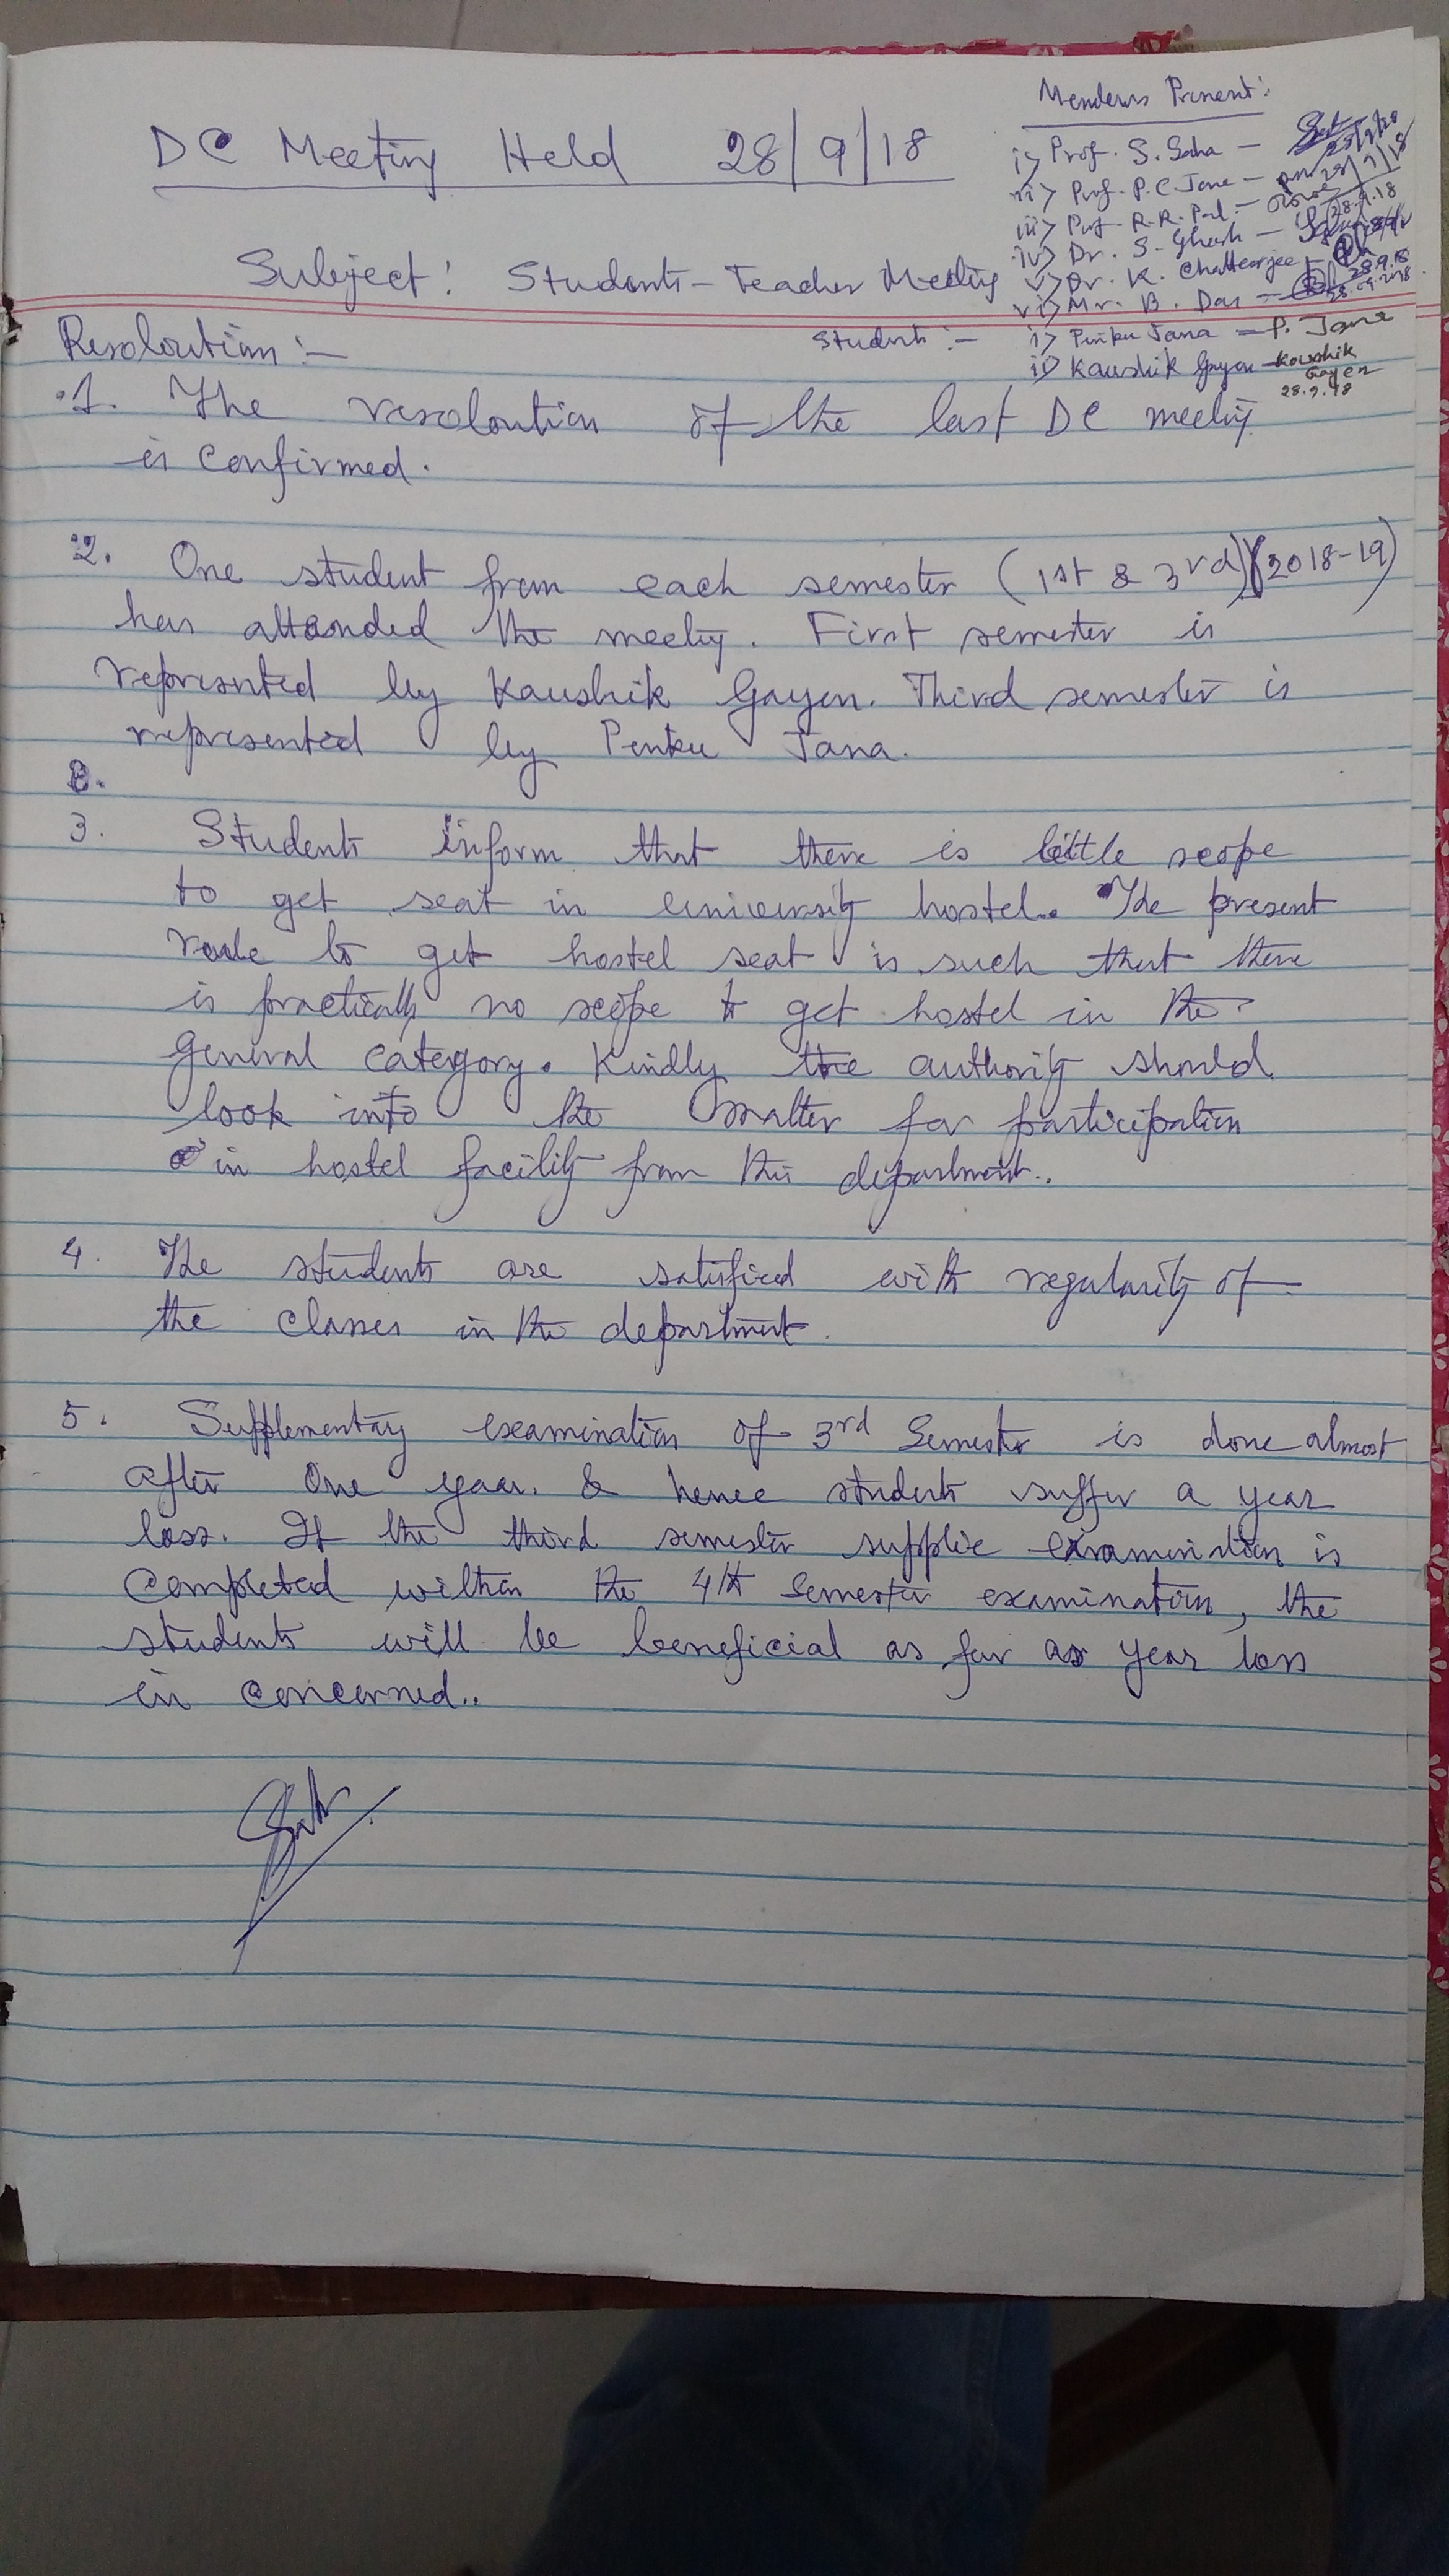 DC Meeting Held 28/9/18
Members Present:
i> Prof. S. Saha -
ii> Prof. P.C. Jana -
iii> Prof. R.R. Pal -
iv> Dr. S. Ghosh - 28.9.18
v> Dr. K. Chatterjee -
vi> Mr. B. Das - 28.9.18
Subject: Students-Teacher Meeting
Student :- i> Pinku Jana - P. Jana
ii> Kaushik Gayen - Kaushik Gayen
28.9.18
Resoloution :-
1. The resoloution of the last DC meeting
is confirmed.
2. One student from each semester (1st & 3rd) (2018-19)
has attended the meeting. First semester is
represented by Kaushik Gayen. Third semester is
represented by Pinku Jana.
3. Students inform that there is little scope
to get seat in university hostel. The present
rule to get hostel seat is such that there
is practically no scope to get hostel in the
general category. Kindly the authority should
look into the matter for participation
in hostel facility from this department..
4. The students are satisfied with regularity of
the classes in the department.
5. Supplementary examination of 3rd Semester is done almost
after One year. & hence students suffer a year
loss. If the third semester supplie examination is
Completed within the 4th Semester examination, the
students will be beneficial as far as year loss
is concerned..